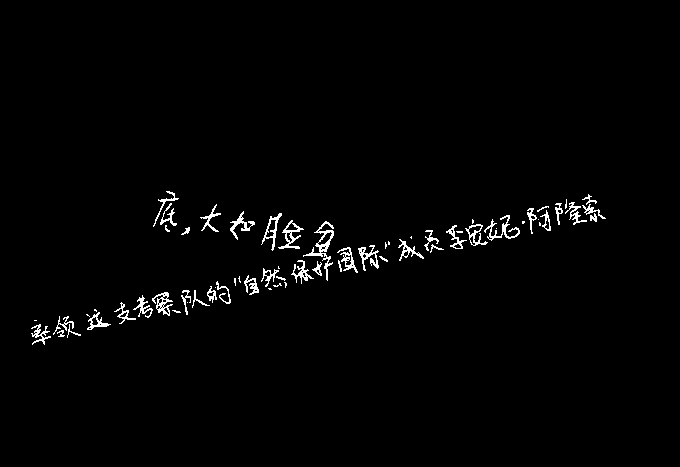 底,大和脸盆
率领这支考察队的"自然保护国际"成员李安妮·阿隆索